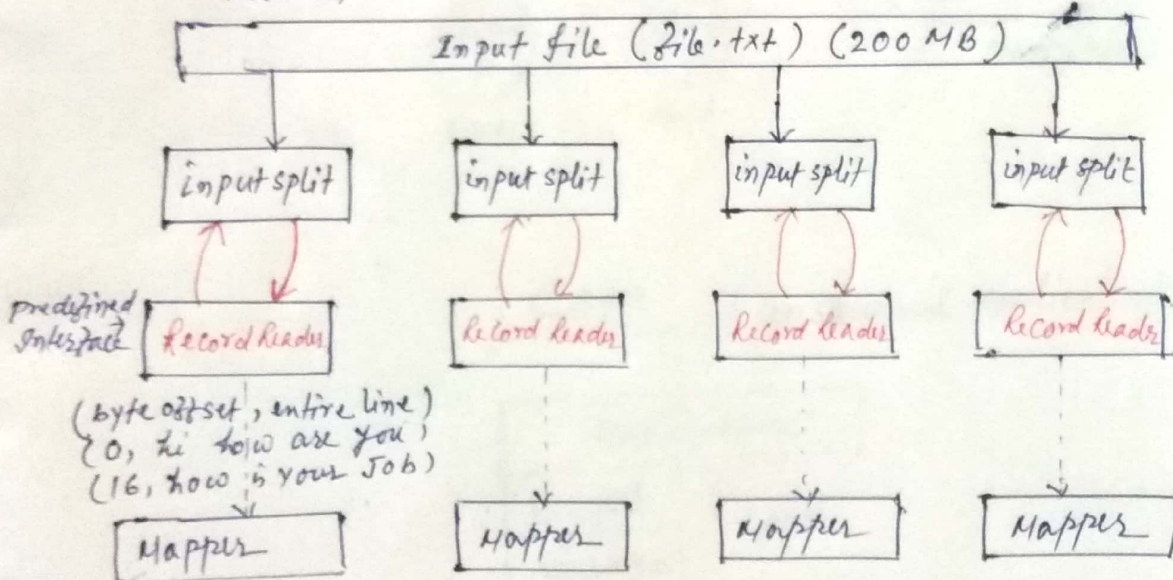 Input file (file.txt) (200 MB)
input split input split input split input split
predefined
Interface
Record Reader Record Reader Record Reader Record Reader
(byte offset, entire line)
(0, hi how are you)
(16, how is your Job)
Mapper Mapper Mapper Mapper